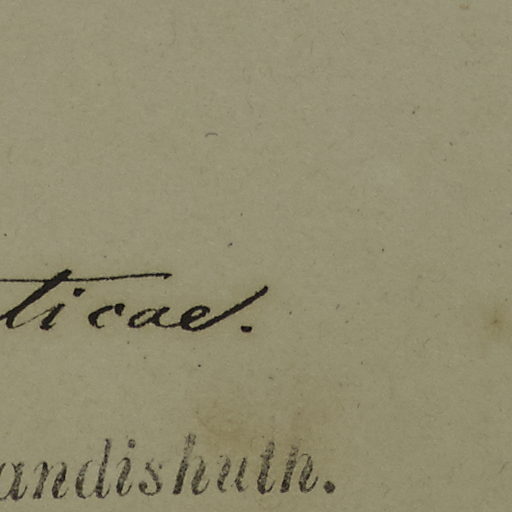 ticae.
andishuth.